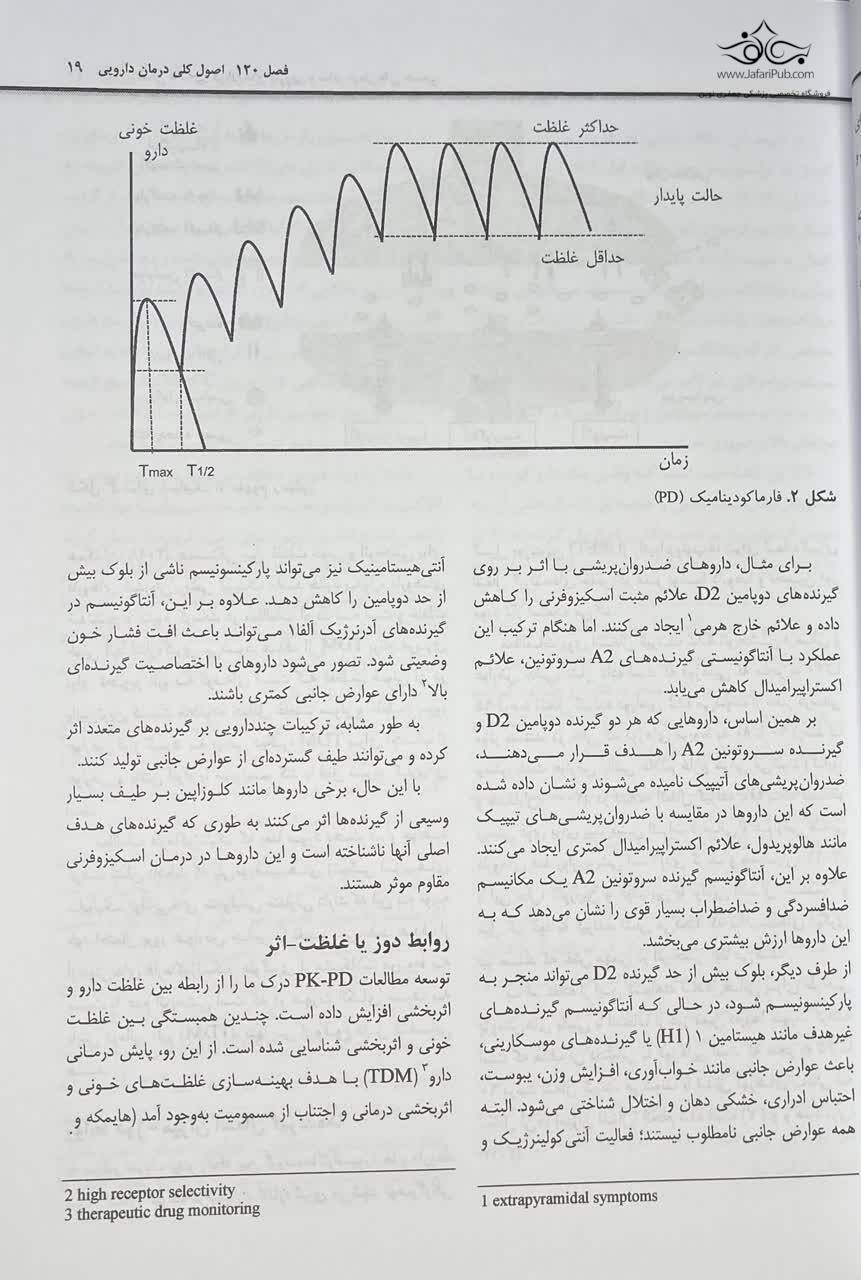 بهافر
www.JafariPub.com
فروشگاه تخصصی پزشکی جعفری نوین
فصل ۱۲۰ اصول کلی درمان دارویی ۱۹
غلظت خونی
دارو
حداکثر غلظت
حالت پایدار
حداقل غلظت
Tmax T1/2
زمان
شکل ۲. فارماکودینامیک (PD)
برای مثال، داروهای ضدروان‌پریشی با اثر بر روی
گیرنده‌های دوپامین D2، علائم مثبت اسکیزوفرنی را کاهش
داده و علائم خارج هرمی۱ ایجاد می‌کنند. اما هنگام ترکیب این
عملکرد با آنتاگونیستی گیرنده‌های A2 سروتونین، علائم
اکستراپیرامیدال کاهش می‌یابد.
بر همین اساس، داروهایی که هر دو گیرنده دوپامین D2 و
گیرنده سروتونین A2 را هدف قرار می‌دهند،
ضدروان‌پریشی‌های آتیپیک نامیده می‌شوند و نشان داده شده
است که این داروها در مقایسه با ضدروان‌پریشی‌های تیپیک
مانند هالوپریدول، علائم اکستراپیرامیدال کمتری ایجاد می‌کنند.
علاوه بر این، آنتاگونیسم گیرنده سروتونین A2 یک مکانیسم
ضدافسردگی و ضداضطراب بسیار قوی را نشان می‌دهد که به
این داروها ارزش بیشتری می‌بخشد.
از طرف دیگر، بلوک بیش از حد گیرنده D2 می‌تواند منجر به
پارکینسونیسم شود، در حالی که آنتاگونیسم گیرنده‌های
غیرهدف مانند هیستامین ۱ (H1) یا گیرنده‌های موسکارینی،
باعث عوارض جانبی مانند خواب‌آوری، افزایش وزن، یبوست،
احتباس ادراری، خشکی دهان و اختلال شناختی می‌شود. البته
همه عوارض جانبی نامطلوب نیستند؛ فعالیت آنتی‌کولینرژیک و
1 extrapyramidal symptoms
آنتی‌هیستامینیک نیز می‌تواند پارکینسونیسم ناشی از بلوک بیش
از حد دوپامین را کاهش دهد. علاوه بر این، آنتاگونیسم در
گیرنده‌های آدرنرژیک آلفا۱ می‌تواند باعث افت فشار خون
وضعیتی شود. تصور می‌شود داروهای با اختصاصیت گیرنده‌ای
بالا۲ دارای عوارض جانبی کمتری باشند.
به طور مشابه، ترکیبات چنددارویی بر گیرنده‌های متعدد اثر
کرده و می‌توانند طیف گسترده‌ای از عوارض جانبی تولید کنند.
با این حال، برخی داروها مانند کلوزاپین بر طیف بسیار
وسیعی از گیرنده‌ها اثر می‌کنند به طوری که گیرنده‌های هدف
اصلی آنها ناشناخته است و این داروها در درمان اسکیزوفرنی
مقاوم موثر هستند.
روابط دوز یا غلظت-اثر
توسعه مطالعات PK-PD درک ما را از رابطه بین غلظت دارو و
اثربخشی افزایش داده است. چندین همبستگی بین غلظت
خونی و اثربخشی شناسایی شده است. از این رو، پایش درمانی
دارو۳ (TDM) با هدف بهینه‌سازی غلظت‌های خونی و
اثربخشی درمانی و اجتناب از مسمومیت به‌وجود آمد (هایمکه و
2 high receptor selectivity
3 therapeutic drug monitoring